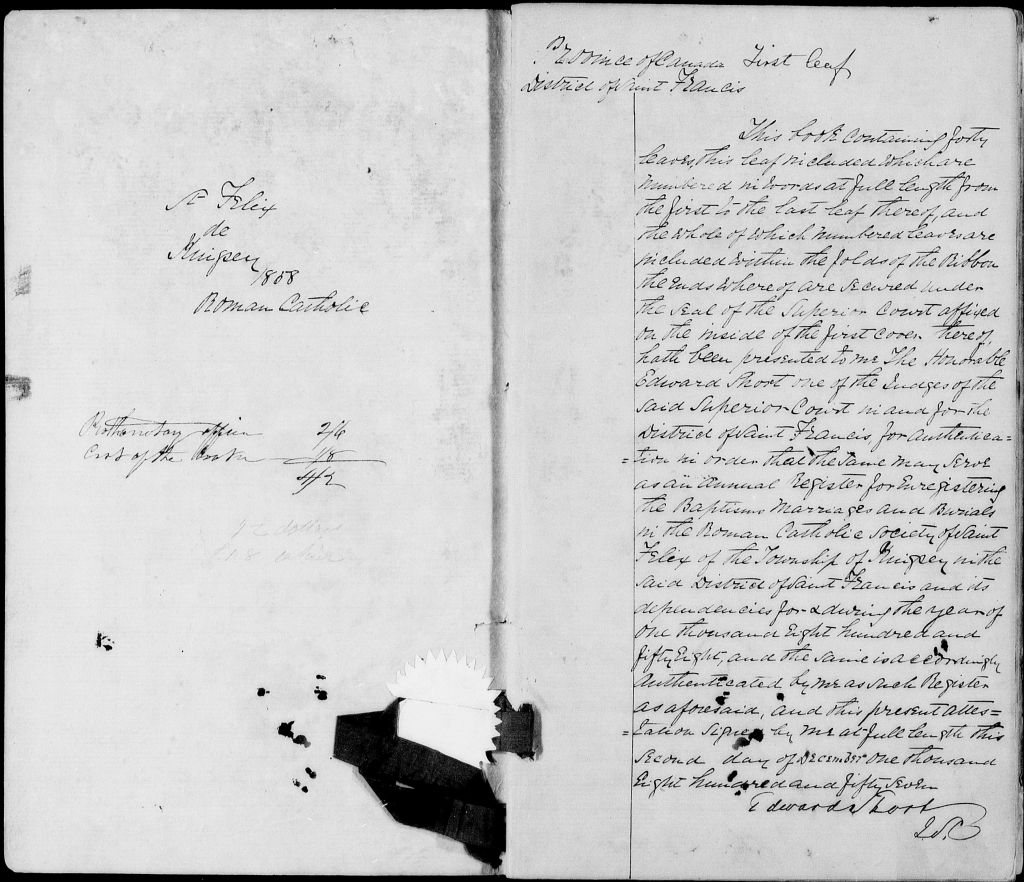 St Felix
de
Kingsey
1858
Roman Catholic
Prothonotary office 2/6
Cost of the Book 1/8
4/2
Province of Canada First leaf
District of Saint Francis
This book containing forty
leaves this leaf included which are
numbered in words at full length from
the first to the last leaf thereof, and
the whole of which numbered leaves are
included within the folds of the Ribbon
the Ends whereof are secured under
the seal of the Superior Court affixed
on the inside of the first cover thereof,
hath been presented to me The Honorable
Edward Short one of the Judges of the
said Superior Court in and for the
District of Saint Francis, for authentica=
=tion in order that the same may serve
as an annual Register for Enregistering
the Baptisms Marriages and Burials
in the Roman Catholic Society of Saint
Felix of the Township of Kingsey in the
said District of Saint Francis and its
dependencies for & during the year of
one thousand Eight hundred and
fifty Eight, and the same is accordingly
authenticated by me as such Register
as aforesaid, and this present attes=
=tation Signed by me at full length this
Second day of December one thousand
Eight hundred and fifty seven
Edward Short
J.S.C.